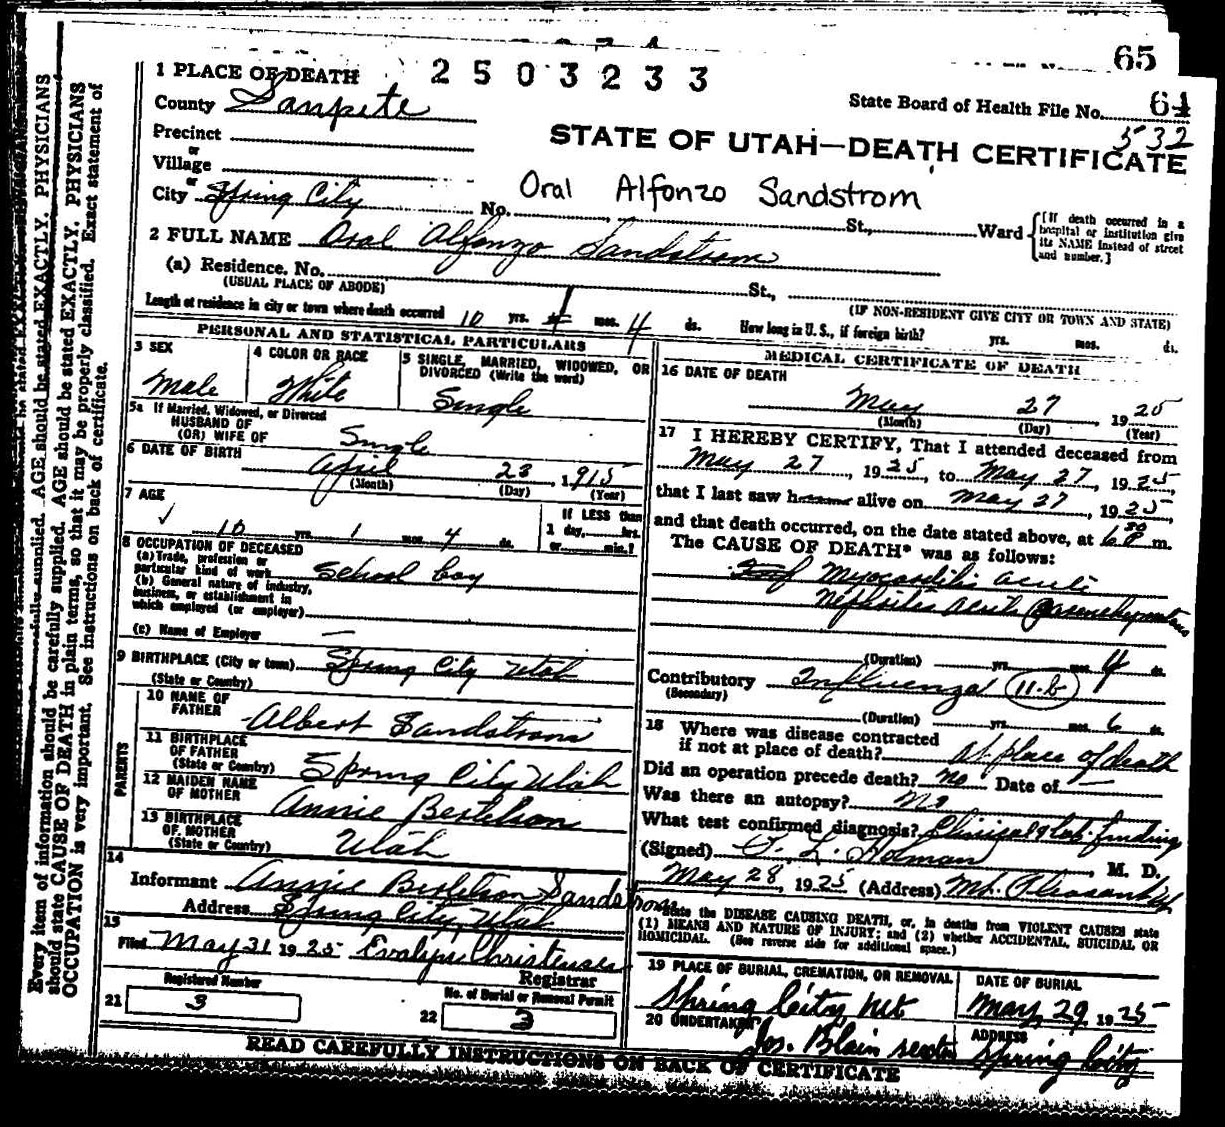 65
2503233
1 PLACE OF DEATH
State Board of Health File No. 64
532
County Sanpete
STATE OF UTAH—DEATH CERTIFICATE
Precinct
or
Village
or
City Spring City No. St., Ward
Oral Alfonzo Sandstrom
[If death occurred in a hospital or institution give its NAME instead of street and number.]
2 FULL NAME Oral Alfonzo Sandstrom
(a) Residence. No. St.,
(USUAL PLACE OF ABODE)
(IF NON-RESIDENT GIVE CITY OR TOWN AND STATE)
Length of residence in city or town where death occurred 10 yrs. 1 mos. 4 ds. How long in U. S., if foreign birth? yrs. mos. ds.
PERSONAL AND STATISTICAL PARTICULARS
3 SEX
Male
4 COLOR OR RACE
White
5 SINGLE, MARRIED, WIDOWED, OR DIVORCED (Write the word)
Single
5a If Married, Widowed, or Divorced
HUSBAND OF
(OR) WIFE OF Single
6 DATE OF BIRTH
April 23 1915
(Month) (Day) (Year)
7 AGE
10 yrs. 1 mos. 4 ds.
If LESS than
1 day, hrs.
or min.?
8 OCCUPATION OF DECEASED
(a) Trade, profession or
particular kind of work School boy
(b) General nature of industry,
business, or establishment in
which employed (or employer)
(c) Name of Employer
9 BIRTHPLACE (City or town) Spring City Utah
(State or Country)
PARENTS
10 NAME OF
FATHER Albert Sandstrom
11 BIRTHPLACE
OF FATHER
(State or Country) Spring City, Utah
12 MAIDEN NAME
OF MOTHER Annie Bertelson
13 BIRTHPLACE
OF MOTHER
(State or Country) Utah
14
Informant Annie Bertelson Sandstrom
Address Spring City, Utah
15
Filed May 31 1925 Evalyn Christensen
Registrar
Registered Number
21 3
No. of Burial or Removal Permit
22 3
MEDICAL CERTIFICATE OF DEATH
16 DATE OF DEATH
May 27, 1925
(Month) (Day) (Year)
17 I HEREBY CERTIFY, That I attended deceased from
May 27, 1925, to May 27, 1925,
that I last saw h alive on May 27, 1925,
and that death occurred, on the date stated above, at m.
The CAUSE OF DEATH* was as follows:
Myocarditis acute
Nephritis acute parenchymatous
(Duration) yrs. mos. 4 ds.
Contributory Influenza 11-b
(Secondary)
(Duration) yrs. mos. 6 ds.
18 Where was disease contracted
if not at place of death? At place of death
Did an operation precede death? no Date of —
Was there an autopsy? No
What test confirmed diagnosis? Clinical & Lab. finding
(Signed) L. Holman, M. D.
May 28, 1925 (Address) Mt. Pleasant
*State the DISEASE CAUSING DEATH, or, in deaths from VIOLENT CAUSES state
(1) MEANS AND NATURE OF INJURY; and (2) whether ACCIDENTAL, SUICIDAL OR
HOMICIDAL. (See reverse side for additional space.)
19 PLACE OF BURIAL, CREMATION, OR REMOVAL
Spring City
DATE OF BURIAL
May 29 1925
20 UNDERTAKER
Jos. Blain sexton
ADDRESS
Spring City
READ CAREFULLY INSTRUCTIONS ON BACK OF CERTIFICATE
Every item of information should be carefully supplied. AGE should be stated EXACTLY. PHYSICIANS
should state CAUSE OF DEATH in plain terms, so that it may be properly classified. Exact statement of
OCCUPATION is very important. See instructions on back of certificate.